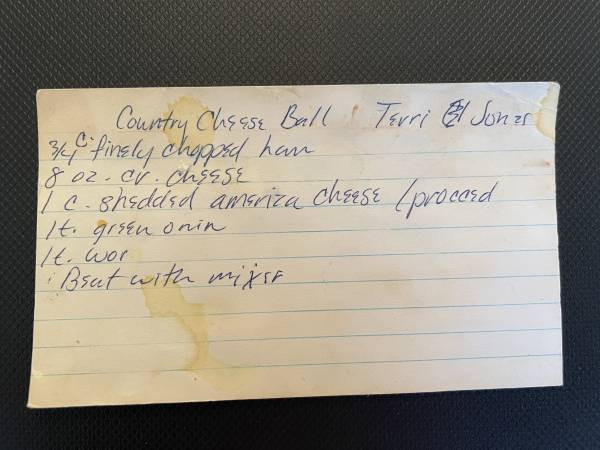 Country Cheese Ball Terri Jones
3/4 c. finely chopped ham
8 oz. cr. cheese
1 c. shedded america cheese / procced
1t. green onin
1t. wor
Beat with mixer